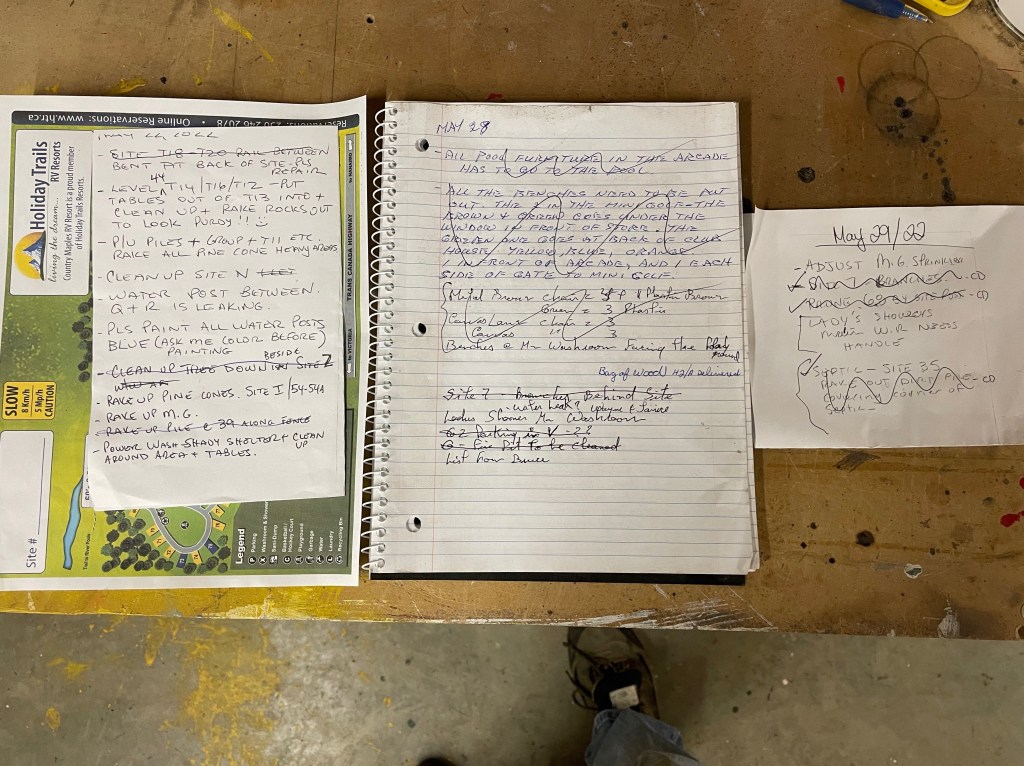 Reservations: 250 246 2078 • Online Reservations: www.htr.c
Holiday Trails
RV Resorts
living the dream....
Country Maples RV Resort is a proud member
of Holiday Trails Resorts.
SLOW
8 Km/h
5 Mph
CAUTION
Site #
to NANAIMO
TRANS CANADA HIGHWAY
to VICTORIA
Legend
Parking
Washroom & Shower
Sani-Dump
Basketball/
Hockey Court
Playground
Garbage
Water
Laundry
Recycling Bin
MAY 22, 2022
- SITE 118-720 RAIL BETWEEN
BENT AT BACK OF SITE. PLS
REPAIR
- LEVEL T14/T16/T12 - PUT
TABLES OUT OF T13 INTO +
CLEAN UP + RAKE ROCKS OUT
TO LOOK PURDY!!
- P/U PILES + GROUP + T11 ETC.
RAKE ALL PINE CONE HEAVY AREAS
- CLEAN UP SITE N
- WATER POST BETWEEN
Q + R IS LEAKING.
- PLS PAINT ALL WATER POSTS
BLUE (ASK ME COLOR BEFORE)
PAINTING
BESIDE
- CLEAN UP TREE DOWN IN SITE 7
- RAKE UP PINE CONES. SITE I/54-54A
- RAKE UP M.G.
- RAKE UP PILE @ 39 ALONG FENCE
- POWER WASH SHADY SHELTER + CLEAN UP
AROUND AREA + TABLES.
MAY 28
- ALL POOL FURNITURE IN THE ARCADE
HAS TO GO TO THE POOL.
- ALL THE BENCHES NEED TO BE PUT
OUT. THE 2 IN THE MINI GOLF - THE
BROWN & GREEN GOES UNDER THE
WINDOW IN FRONT OF STORE. THE
GREEN ONE GOES AT BACK OF CLUB
HOUSE, YELLOW, BLUE, ORANGE.
IN FRONT OF ARCADE, AND 1 EACH
SIDE OF GATE TO MINI GOLF.
Metal Brown chair Plastic Brown
Green = 3 Plastic
Canvas Lawn chair = 3
Canvas " 3
Benches @ Mr Washroom Facing the Play
ground
Bag of wood H2/A Delivered
Site 7 - Branches Behind Site
- water leak?
Ladies Shower Mr Washroom
G2 Parking in V - 2?
Q - Fire Pit To be cleaned
List from Bruce
May 29/22
- ADJUST M.G SPRINKLER
BRANCHES - CD
BY SITE - CD
LADY'S SHOWERS
W.R NEEDS
HANDLE
SEPTIC - SITE 35
RAKE OUT DIRT PILE - CD
COVERING CORNER OF
SEPTIC -